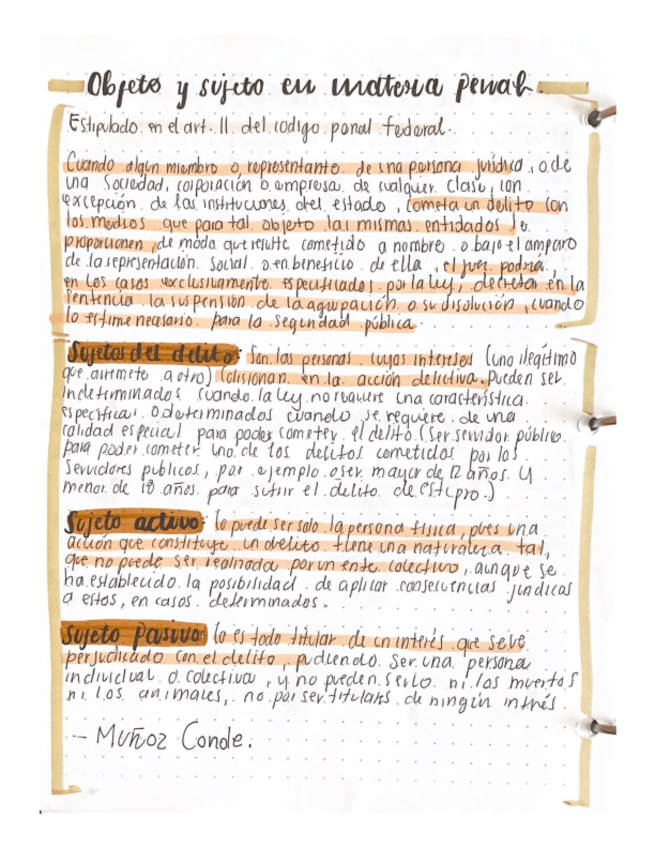 Objeto y sujeto en materia penal.
Estipulado en el art. 11 del codigo penal federal.
Cuando algún miembro o representante de una persona jurídica, o de
una sociedad, corporación o empresa de cualquier clase, con
excepción de las instituciones del estado, cometa un delito con
los medios que para tal objeto las mismas entidades le
proporcionen, de modo que resulte cometido a nombre o bajo el amparo
de la representación social o en beneficio de ella, el juez podrá,
en los casos exclusivamente especificados por la ley, decretar en la
sentencia la suspensión de la agrupación o su disolución, cuando
lo estime necesario para la seguridad pública.
Sujetos del delito: Son las personas cuyos intereses (uno ilegítimo
que arremete a otro) colisionan en la acción delictiva. Pueden ser
indeterminados cuando la ley no requiere una característica
específica o determinados cuando se requiere de una
calidad especial para poder cometer el delito. (Ser servidor público
para poder cometer uno de los delitos cometidos por los
servidores publicos, por ejemplo o ser mayor de 12 años y
menor de 18 años para sufrir el delito de estupro.)
Sujeto activo: lo puede ser solo la persona física, pues una
acción que constituye un delito tiene una naturaleza tal,
que no puede ser realizada por un ente colectivo, aunque se
ha establecido la posibilidad de aplicar consecuencias jurídicas
a estos, en casos determinados.
Sujeto Pasivo: lo es todo titular de un interés que se ve
perjudicado con el delito, pudiendo ser una persona
individual o colectiva, y no pueden serlo ni los muertos
ni los animales, no por ser titulares de ningún interés.
- Muñoz Conde.